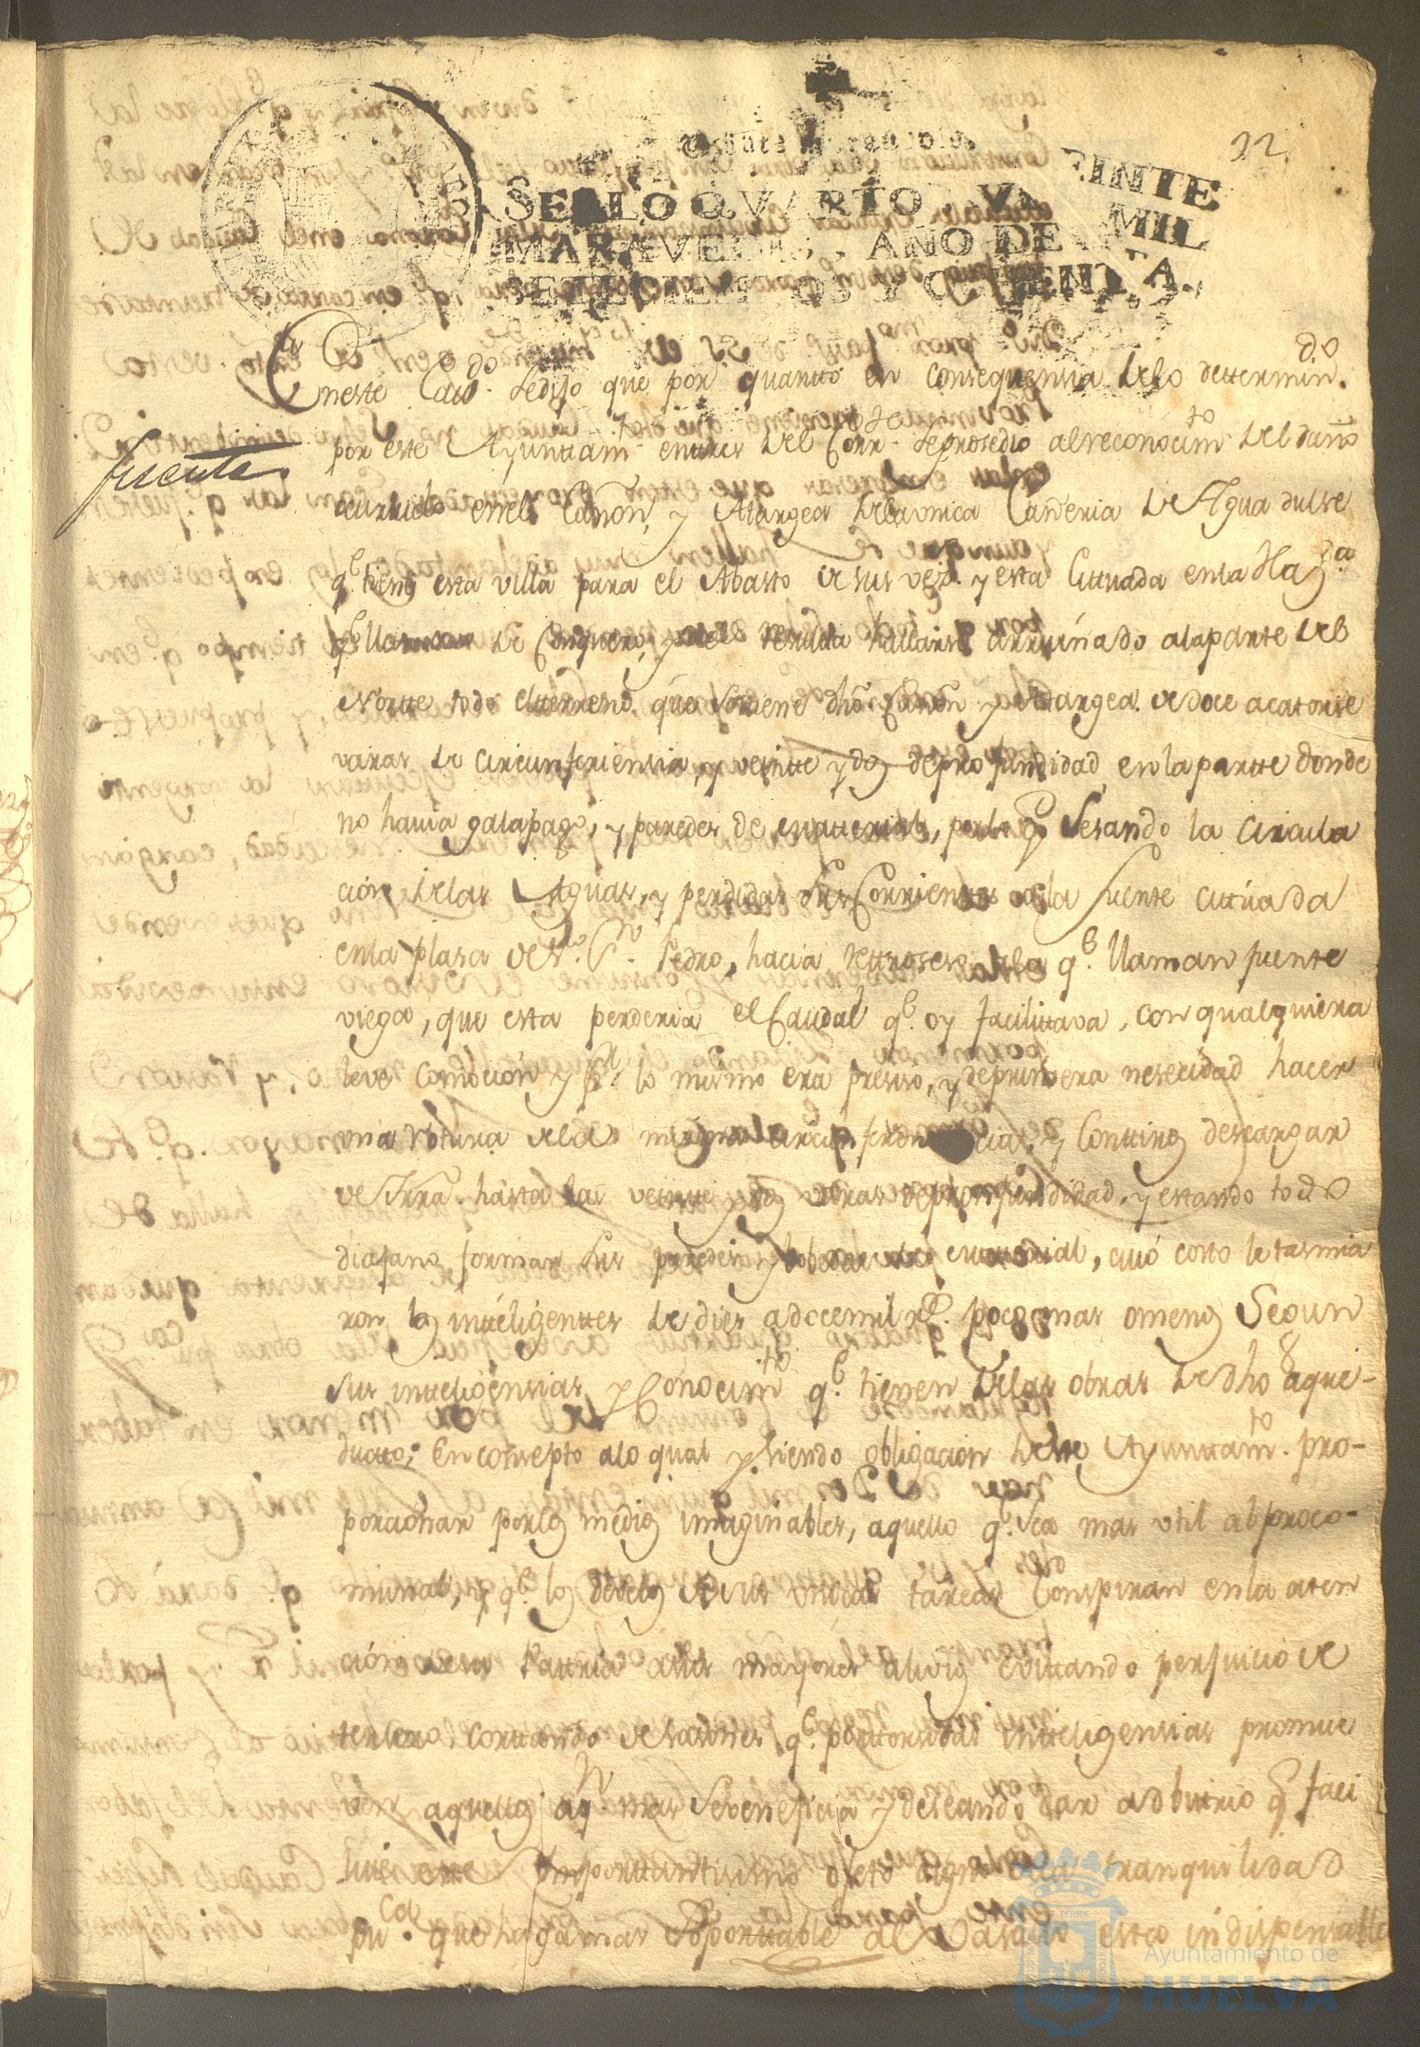 22
Veinte maravedis.
SELLO QVARTO, VEINTE
MARAVEDIS, AÑO DE MIL
SETECIENTOS Y OCHENTA.
fuente
En este Cavdo. se dijo que por quantto en consequensia delo dettermindo.
por este Ayunttamto. entres del Corrte. se prosedio al reconocimto. del daño
ocurrido en el Cañon, y Atargea dela unica Cañeria de Agua dulse
qe. tiene esta villa para el Abasto de sus vezos. y esta cittuada en la Hazda.
qe. llaman de Conquero, y de el resulta hallarse arruinado ala parte del
Nortte todo el tterreno, que sostiene dho. Cañon y Atargea de doce a catorse
varas de circunferiensia, y veintte y dos de profundidad, en la partte donde
no havia galapago, y paredes de matterial, por lo qe. sesando la circula
ción delas Aguas, y perdidas sus Corrientes ala fuente cittuada
en la plasa de Sr. Sn. Pedro, hacia rettroseso ala qe. llaman fuente
viega, que esta perderia el Caudal qe. oy facilittava, con qualquiera
leve comocion y pr. lo mismo era presiso, y de primera nesecidad hacer
una rotura dela misma circunferencia, y conttinos descargar
de tierra hasta las veintte y dos varas de profundidad, y estando todo
diafano formar sus paredes y bobedas de matterial, cuio costo le tasmia
ron los inteligenttes de dies a doce mil rs. pocos mas o menos segun
sus intteligensias y Conocimto. qe. tienen delas obras de dho aque-
ductto; En consepto alo qual y siendo obligacion deste Ayunttamto. pro-
porcionar por los medios imaginables, aquello qe. sea mas util al proco-
munal, y qe. los desvelos de sus unicas tareas conspiran en la aten
ción dela Pattria a sus mayores alivios evittando perjuicio de
tersero, corttando desasones qe. portorsidas intteligensias promue
ven aquellos a qn. mas se venefisia y deseando dar adbitrio qe. faci
lite este importtantisimo ojeto digno dela tranquilidad
puca. que haga mas soporttable al Vasallo estas indispensable
Ayuntamiento de
HUELVA